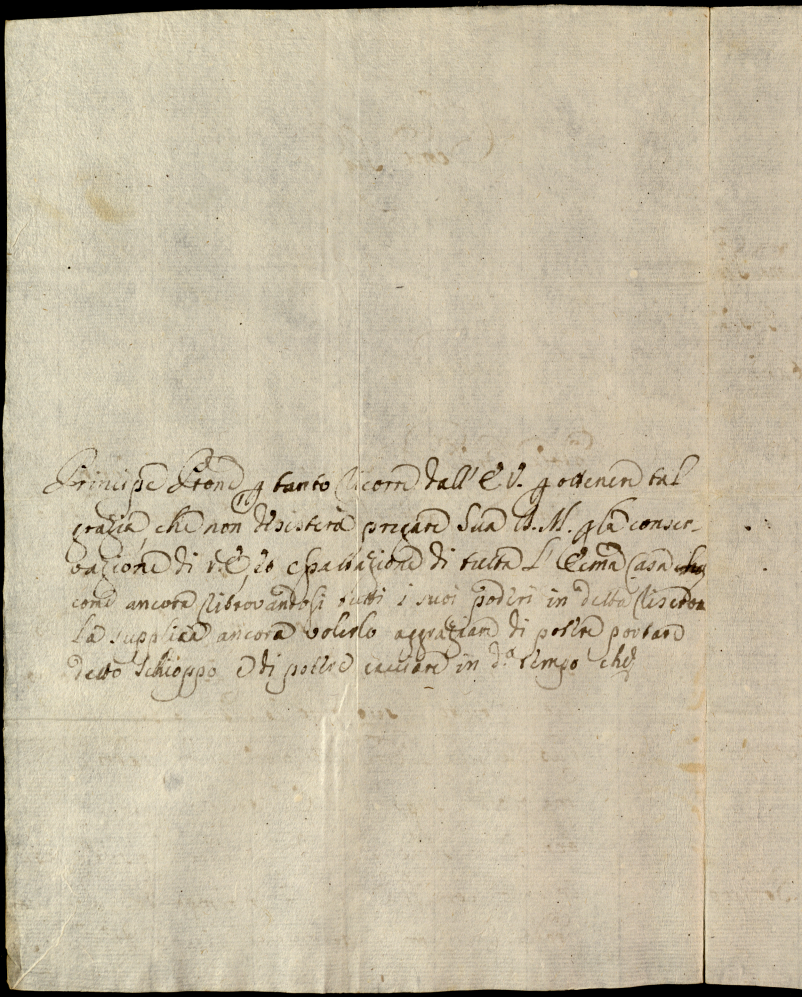 Principe Prone p tanto ricorre dall' E. V. p ottenere tal
grazia, che non desisterà pregare Sua D. M. p la conser-
vazione di V. E., e di tutta L' Ecma Casa
come ancora ritrovandosi tutti i suoi poderi in detta
La supplica ancora volerlo aggraziare di potere portare
detto Schioppo e di potere cacciare in do tempo che